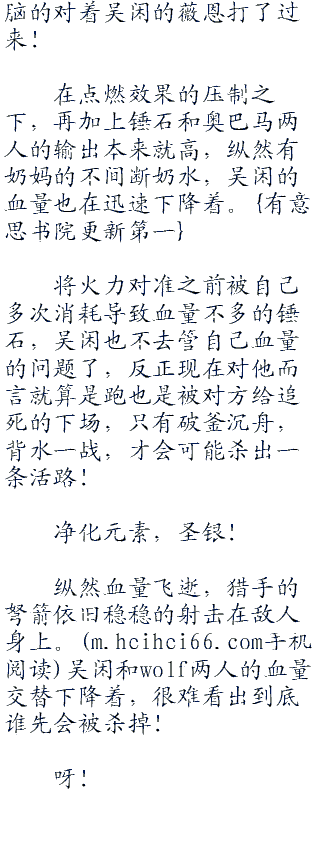 脑的对着吴闲的薇恩打了过
来！
在点燃效果的压制之
下，再加上锤石和奥巴马两
人的输出本来就高，纵然有
奶妈的不间断奶水，吴闲的
血量也在迅速下降着。{有意
思书院更新第一}
将火力对准之前被自己
多次消耗导致血量不多的锤
石，吴闲也不去管自己血量
的问题了，反正现在对他而
言就算是跑也是被对方给追
死的下场，只有破釜沉舟，
背水一战，才会可能杀出一
条活路！
净化元素，圣银！
纵然血量飞逝，猎手的
弩箭依旧稳稳的射击在敌人
身上。(m.hcihci66.com手机
阅读)吴闲和wolf两人的血量
交替下降着，很难看出到底
谁先会被杀掉！
呀！